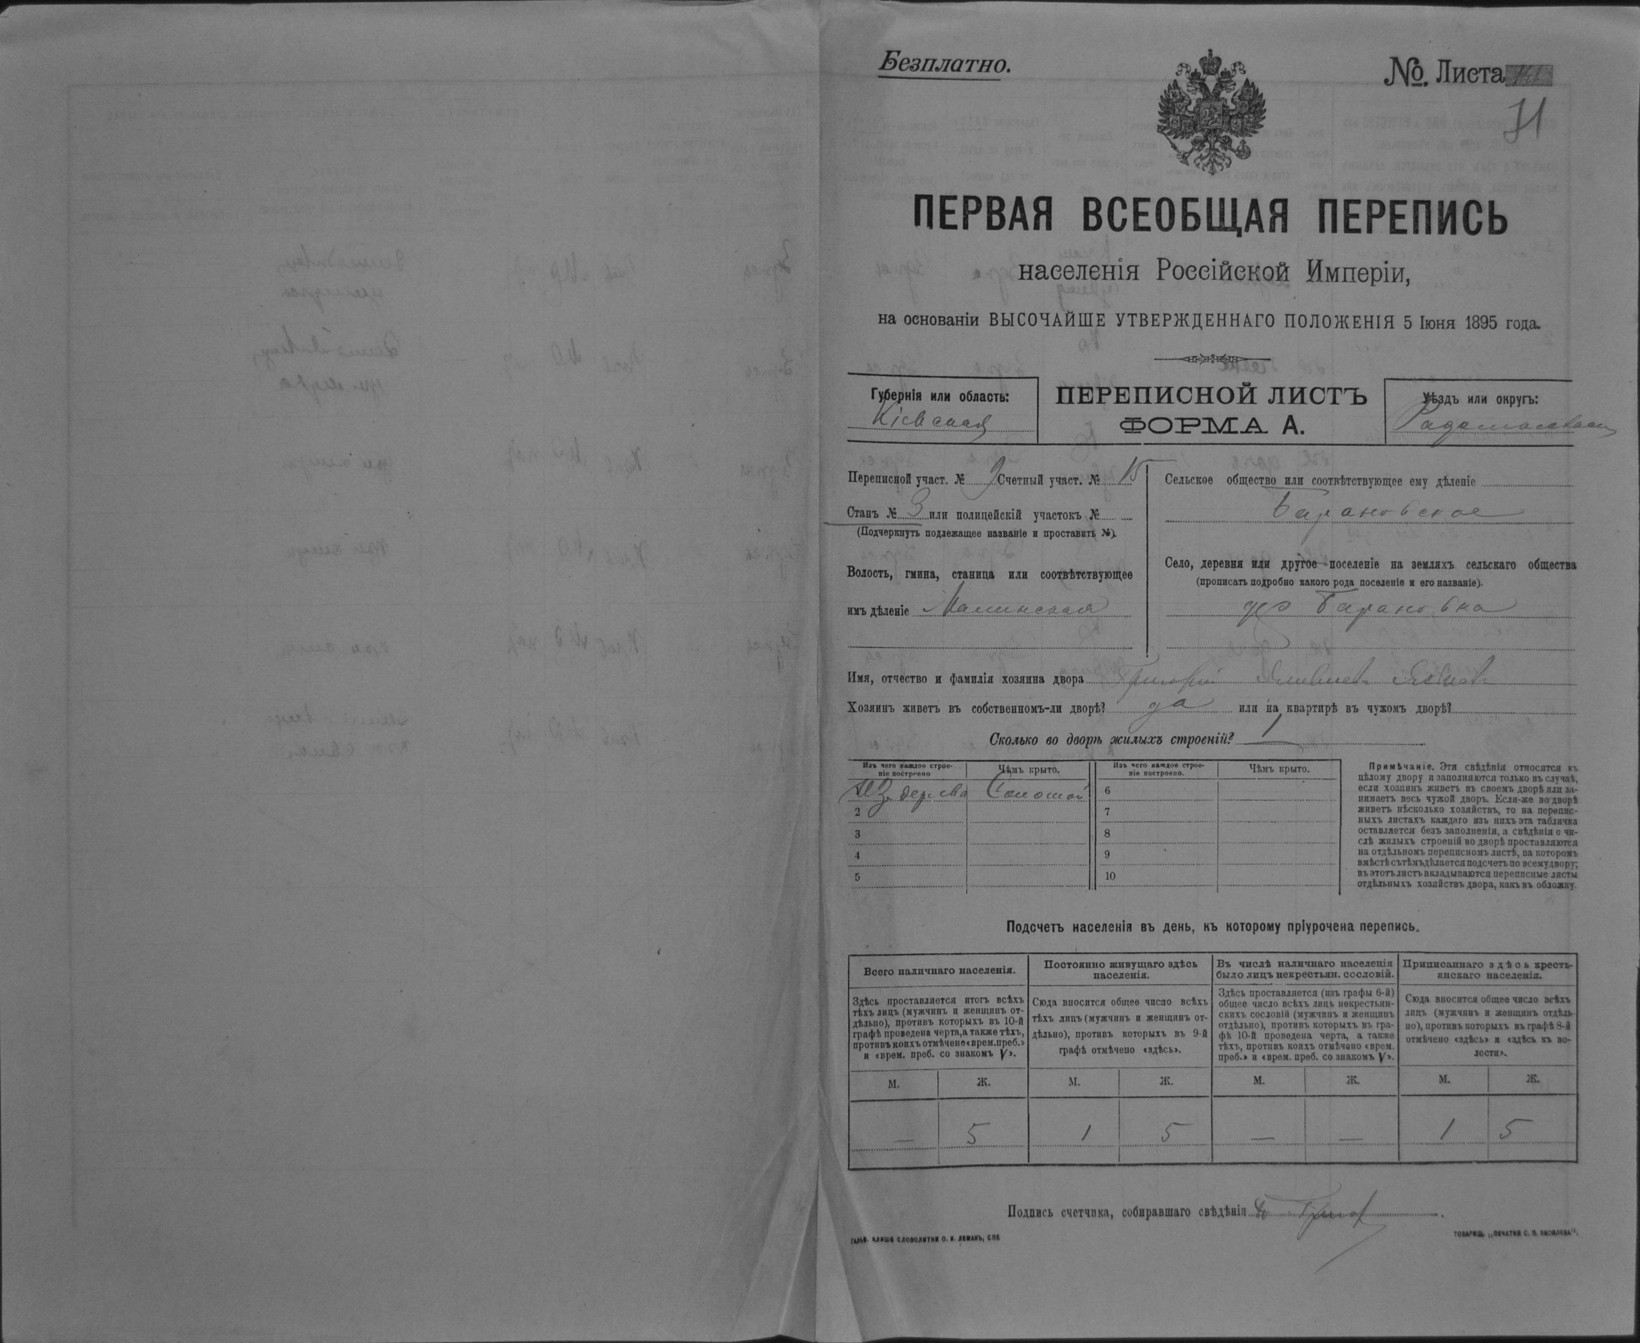 Безплатно.
№. Листа
71
ПЕРВАЯ ВСЕОБЩАЯ ПЕРЕПИСЬ
населенія Россійской Имперіи,
на основаніи ВЫСОЧАЙШЕ УТВЕРЖДЕННАГО ПОЛОЖЕНІЯ 5 Іюня 1895 года.
Губернія или область:
Кіевская
ПЕРЕПИСНОЙ ЛИСТЪ
ФОРМА А.
Уѣздъ или округъ:
Радомысльскій
Переписной участ. № 3 Счетный участ. № 15
Станъ № 3 или полицейскій участокъ №
(Подчеркнуть подлежащее названіе и проставить №).
Волость, гмина, станица или соотвѣтствующее
имъ дѣленіе Малинская
Сельское общество или соотвѣтствующее ему дѣленіе
Барановское
Село, деревня или другое поселеніе на земляхъ сельскаго общества
(прописать подробно какого рода поселеніе и его названіе).
дер Барановка
Имя, отчество и фамилія хозяина двора Григорій
Хозяинъ живетъ въ собственномъ-ли дворѣ? да или на квартирѣ въ чужомъ дворѣ?
Сколько во дворѣ жилыхъ строеній? 1
Изъ чего каждое строе-
ніе построено
Чѣмъ крыто.
Изъ чего каждое строе-
ніе построено.
Чѣмъ крыто.
Изъ дерева Соломой
2
3
4
5
6
7
8
9
10
Примѣчаніе. Эти свѣдѣнія относятся къ
цѣлому двору и заполняются только въ случаѣ,
если хозяинъ живетъ въ своемъ дворѣ или за-
нимаетъ весь чужой дворъ. Если-же во дворѣ
живетъ нѣсколько хозяйствъ, то на перепис-
ныхъ листахъ каждаго изъ нихъ эта табличка
оставляется безъ заполненія, а свѣдѣнія о чи-
слѣ жилыхъ строеній во дворѣ проставляются
на отдѣльномъ переписномъ листѣ, на которомъ
вмѣстѣ съ тѣмъ дѣлается подсчетъ по всему двору;
въ этотъ листъ вкладываются переписные листы
отдѣльныхъ хозяйствъ двора, какъ въ обложку.
Подсчетъ населенія въ день, къ которому пріурочена перепись.
Всего наличнаго населенія.
Здѣсь проставляется итогъ всѣхъ
тѣхъ лицъ (мужчинъ и женщинъ от-
дѣльно), противъ которыхъ въ 10-й
графѣ проведена черта, а также тѣхъ,
противъ коихъ отмѣчено «врем. преб.»
и «врем. преб. со знакомъ V».
Постоянно живущаго здѣсь
населенія.
Сюда вносится общее число всѣхъ
тѣхъ лицъ (мужчинъ и женщинъ от-
дѣльно), противъ которыхъ въ 9-й
графѣ отмѣчено «здѣсь».
Въ числѣ наличнаго населенія
было лицъ некрестьян. сословій.
Здѣсь проставляется (изъ графы 6-й)
общее число всѣхъ лицъ некрестьян-
скихъ сословій (мужчинъ и женщинъ
отдѣльно), противъ которыхъ въ гра-
фѣ 10-й проведена черта, а также
тѣхъ, противъ коихъ отмѣчено «врем.
преб.» и «врем. преб. со знакомъ V».
Приписаннаго здѣсь кресть-
янскаго населенія.
Сюда вносится общее число всѣхъ
лицъ (мужчинъ и женщинъ отдѣль-
но), противъ которыхъ въ графѣ 8-й
отмѣчено «здѣсь» и «здѣсь къ во-
лости».
М. Ж. М. Ж. М. Ж. М. Ж.
— 5 1 5 — — 1 5
Подпись счетчика, собиравшаго свѣдѣнія
ГАЛЬВ. КЛИШЕ СЛОВОЛИТНИ О. И. ЛЕМАНЪ, СПБ
ТОВАРИЩ. „ПЕЧАТНЯ С. П. ЯКОВЛЕВА“.